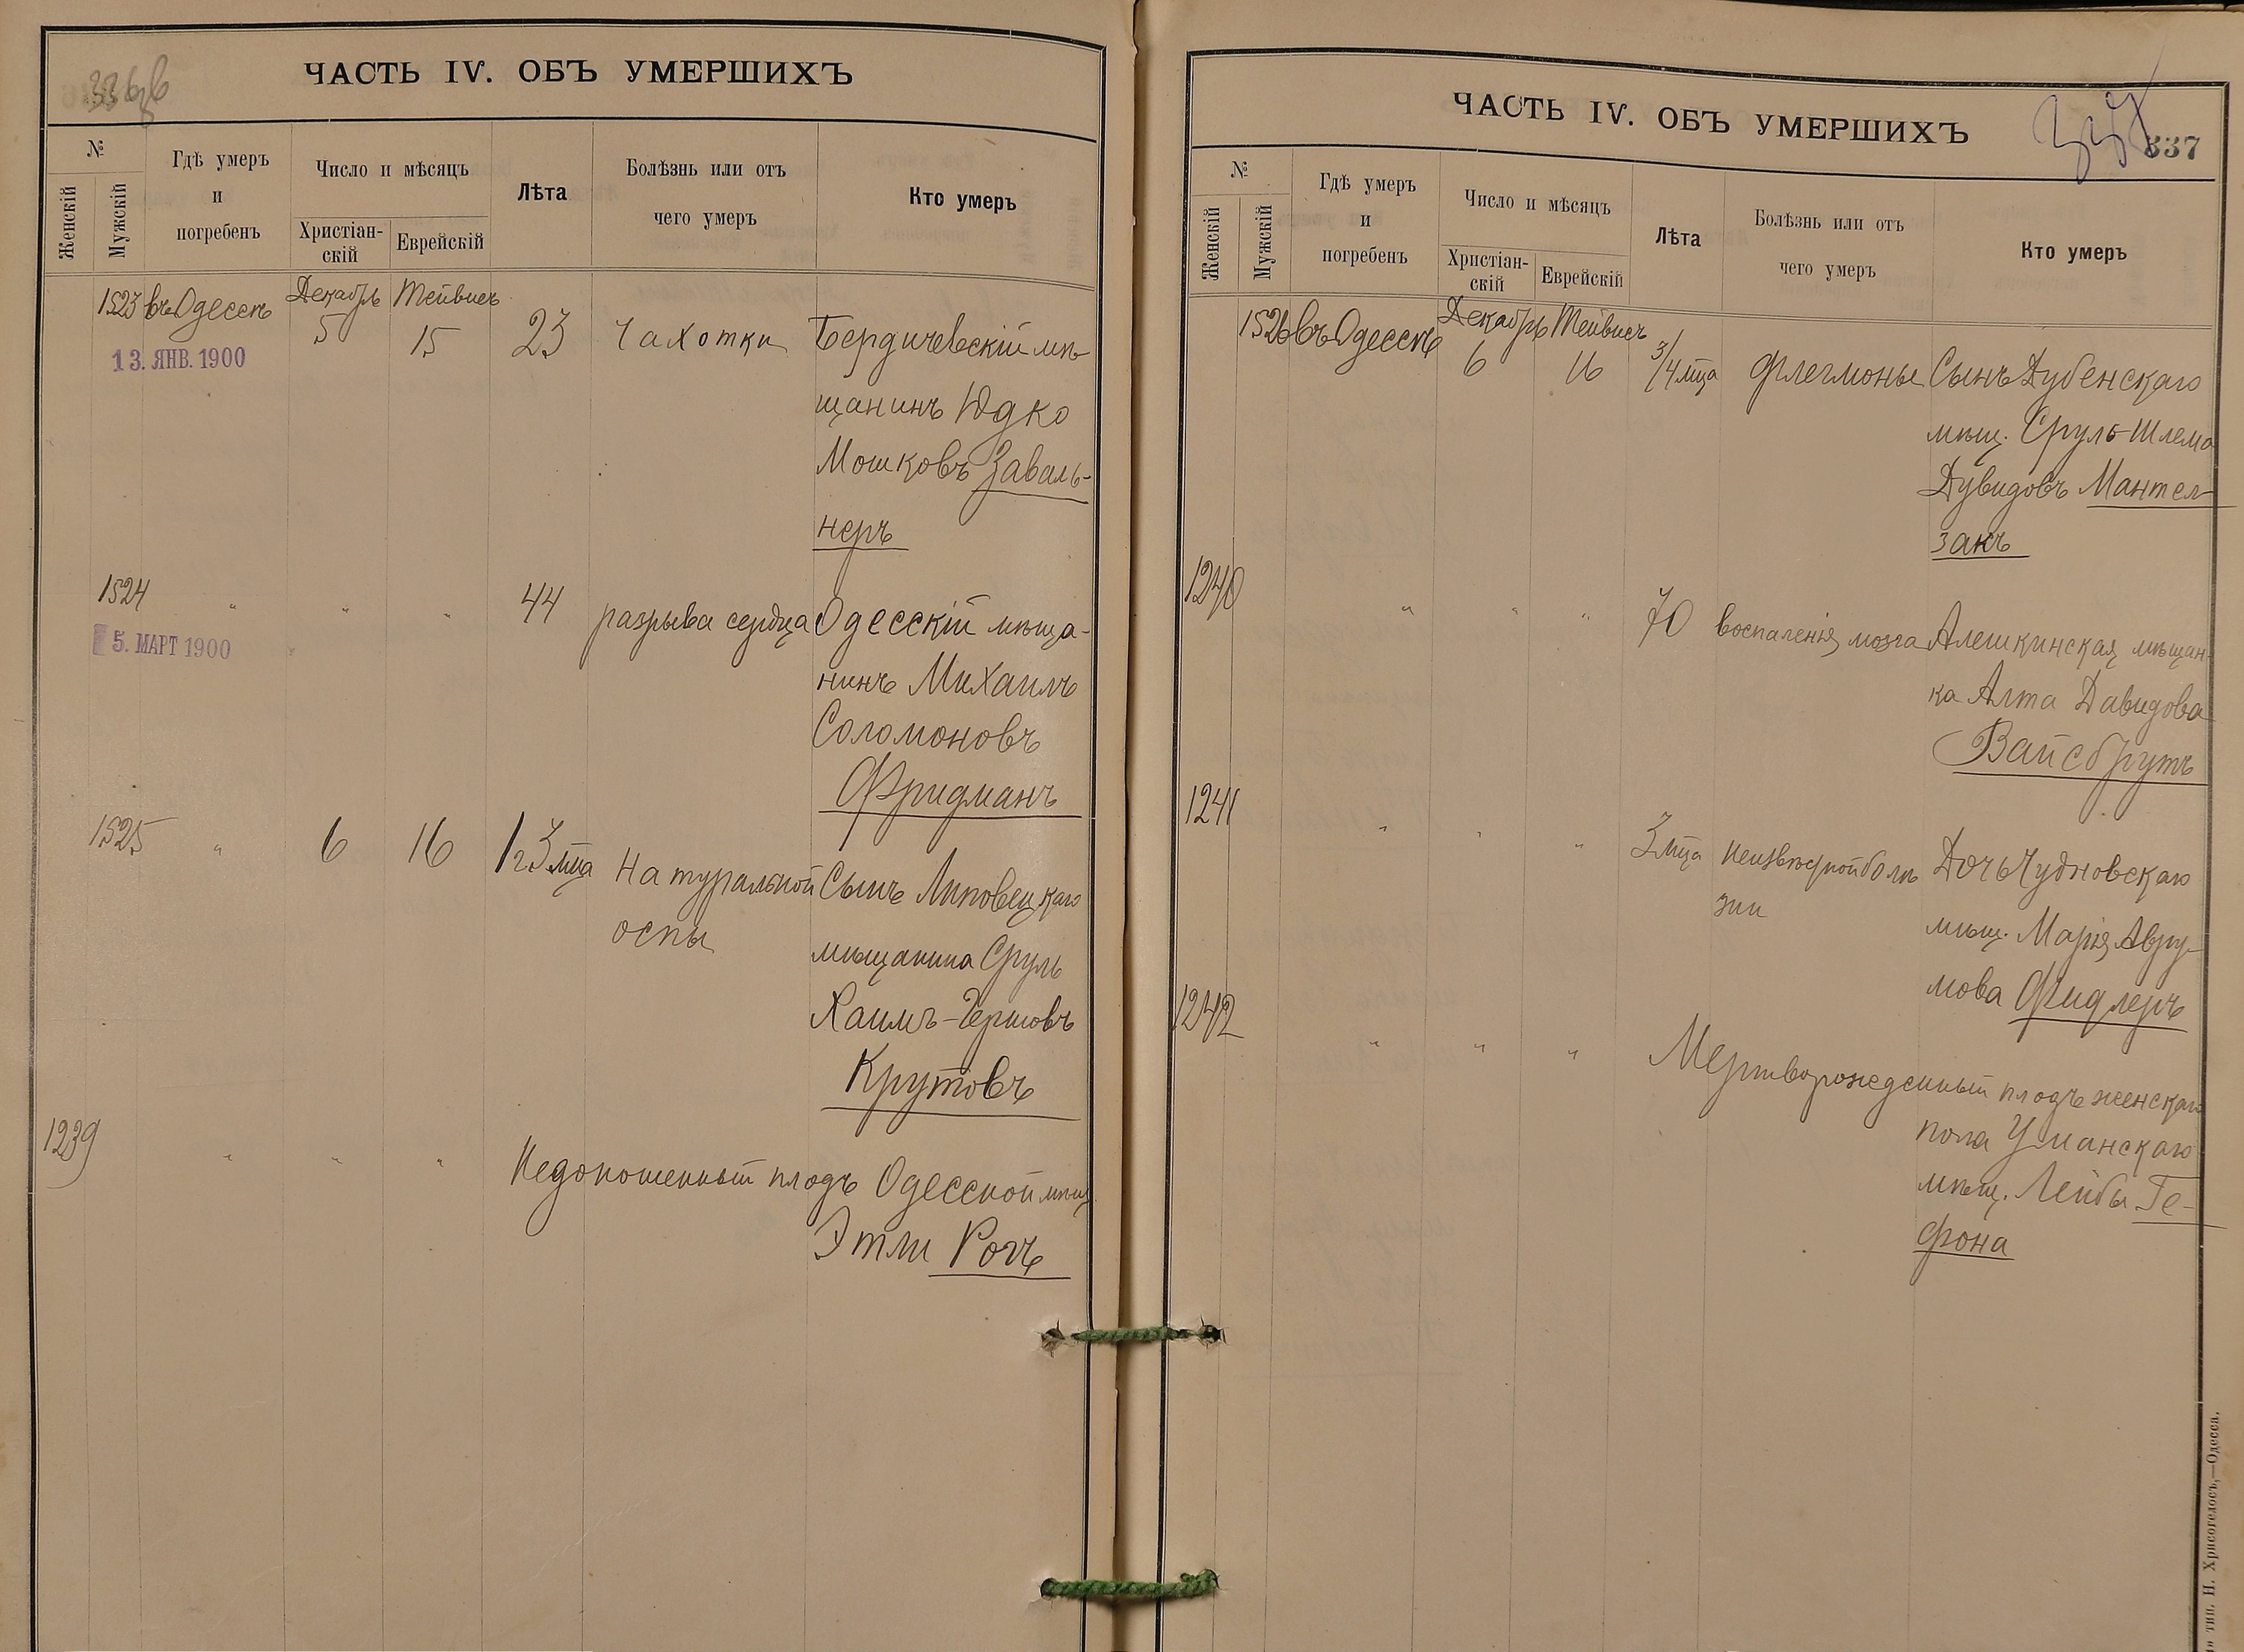 336
ЧАСТЬ IV. ОБЪ УМЕРШИХЪ
№
Женскій
Мужскій
Гдѣ умеръ
и
погребенъ
Число и мѣсяцъ
Христіан-
скій
Еврейскій
Лѣта
Болѣзнь или отъ
чего умеръ
Кто умеръ
1523 въ Одессѣ Декабрь 5 Тейвисъ 15 23 Чахотки Бердичевскій мѣ-
13. ЯНВ. 1900
щанинъ Юдко
Мошковъ Заваль-
неръ
1524 " " " 44 разрыва сердца Одесскій мѣща-
5. МАРТ 1900
нинъ Михаилъ
Соломоновъ
Фридманъ
1525 " 6 16 1 г 3 мца Натуральной Сынъ Липовецкаго
оспы
мѣщанина Сруль
Хаимъ-Гершовъ
Крутовъ
1239 " " " Недоношенный плодъ Одесской мѣщ.
Этли Рогъ
ЧАСТЬ IV. ОБЪ УМЕРШИХЪ
337
337
№
Женскій
Мужскій
Гдѣ умеръ
и
погребенъ
Число и мѣсяцъ
Христіан-
скій
Еврейскій
Лѣта
Болѣзнь или отъ
чего умеръ
Кто умеръ
1526 въ Одессѣ Декабрь 6 Тейвисъ 16 3/4 мца Флегмоны Сынъ Дубенскаго
мѣщ. Сруль-Шлема
Дувидовъ Мантел-
закъ
1240 " " " 70 воспаленія мозга Алешкинская мѣщан-
ка Алта Давидова
Вайсбрутъ
1241 " " " 3 мца Неизвѣстной болѣ Дочь Чудновскаго
зни
мѣщ. Марія Авру-
мова Фидлеръ
1242 " " " Мертворожденный плодъ женскаго
пола Уманскаго
мѣщ. Лейбы Ге-
фона
тип. Н. Хрисогелосъ,—Одесса.